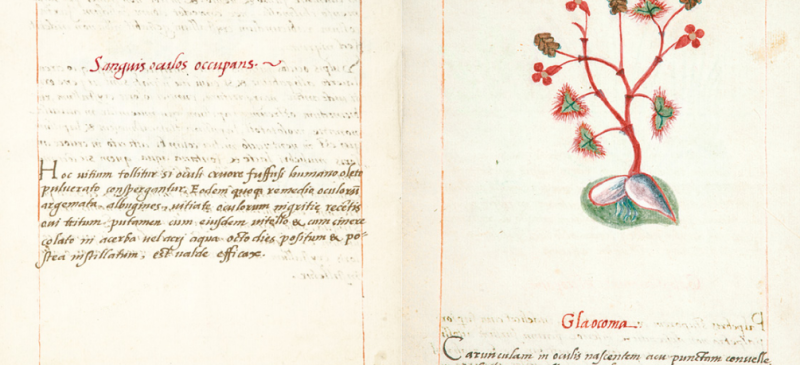 Sanguis oculos occupans.
Hoc uitium tollitur si oculi cruore suffusi humano oleto
puluerato conspergantur. Eodem quoq remedio oculorũ
argemata, albugines, uitiatę oculorum nigritię recẽtis
oui tritum putamen cum eiusdem uitello & cum cinere
colato in acerba uel acri aqua octo dies positum & po-
stea instillatum, est ualde efficax.
Glaocoma.
Carunculam in oculis nascentem acu punctam conuelle,